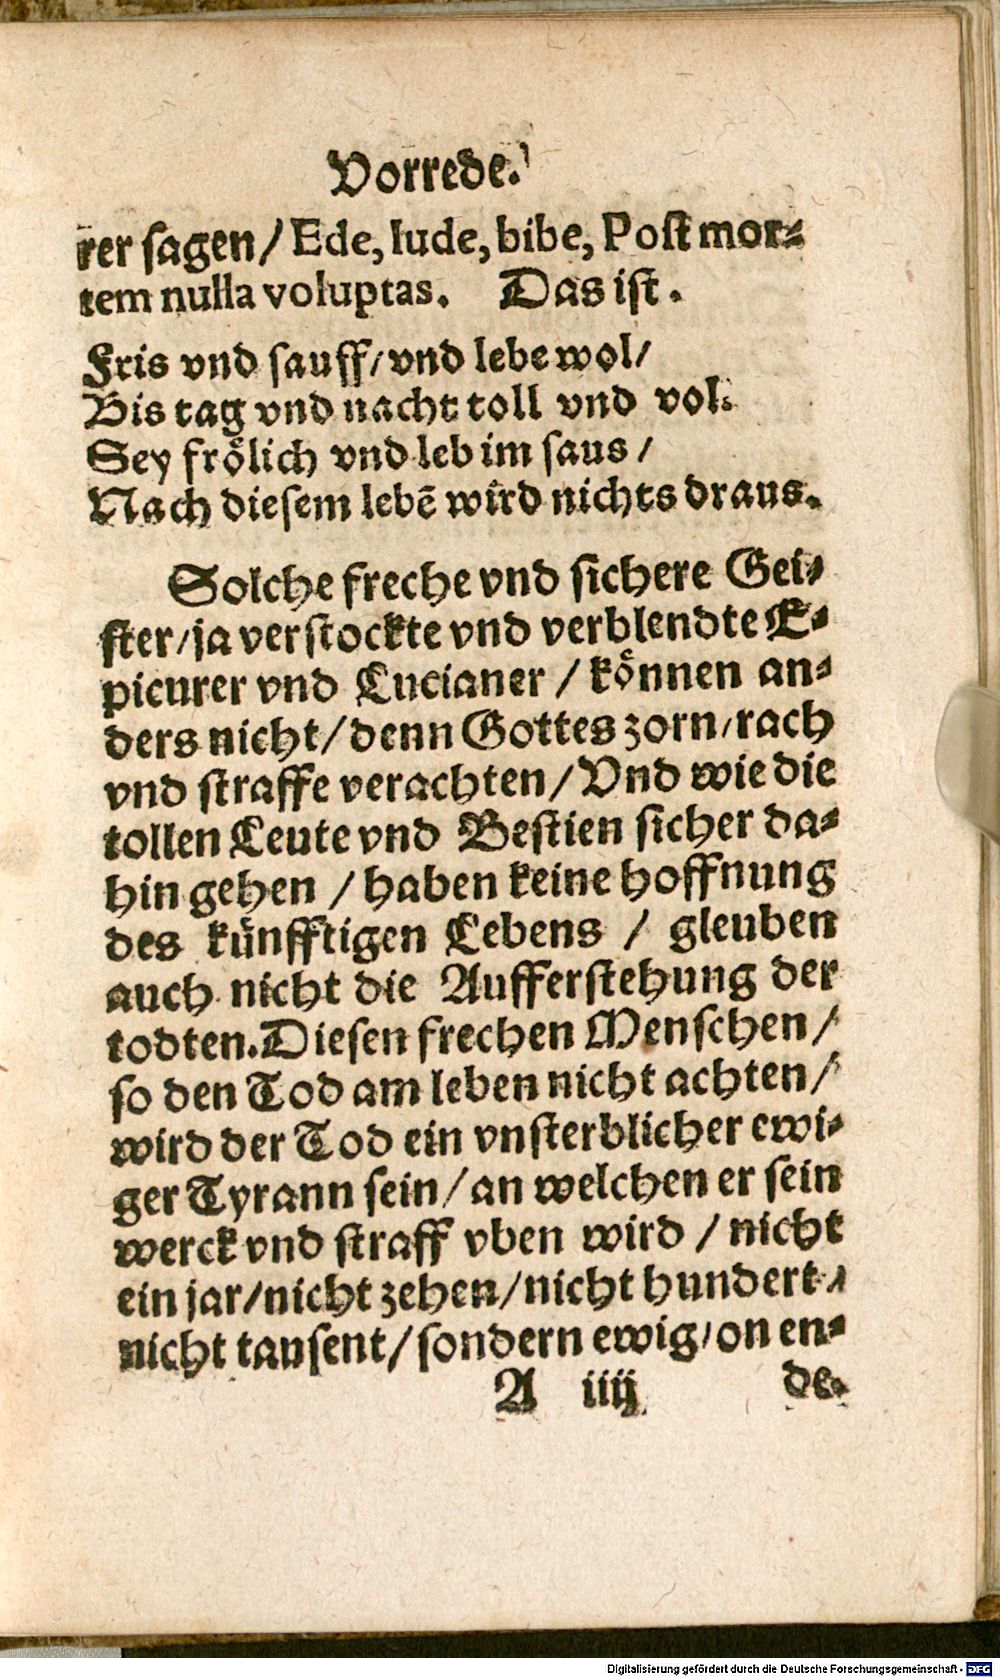 Vorrede.
rer sagen / Ede, lude, bibe, Post mor⸗
tem nulla voluptas. Das ist.
Fris vnd sauff / vnd lebe wol /
Bis tag vnd nacht toll vnd vol.
Sey frölich vnd leb im saus /
Nach diesem lebē wird nichts draus.
Solche freche vnd sichere Gei⸗
ster / ja verstockte vnd verblendte E⸗
picurer vnd Lucianer / können an⸗
ders nicht / denn Gottes zorn / rach
vnd straffe verachten / Vnd wie die
tollen Leute vnd Bestien sicher da⸗
hin gehen / haben keine hoffnung
des künfftigen Lebens / gleuben
auch nicht die Aufferstehung der
todten. Diesen frechen Menschen /
so den Tod am leben nicht achten /
wird der Tod ein vnsterblicher ewi⸗
ger Tyrann sein / an welchen er sein
werck vnd straff vben wird / nicht
ein jar / nicht zehen / nicht hundert /
nicht tausent / sondern ewig / on en⸗
A iiij de.
Digitalisierung gefördert durch die Deutsche Forschungsgemeinschaft - DFG